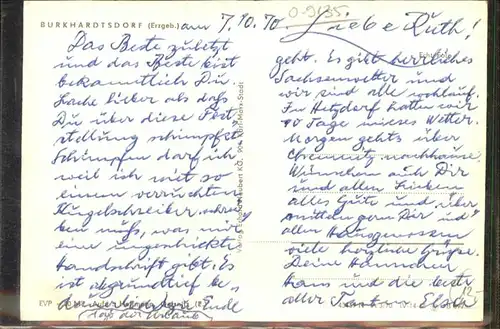 BURKHARDTSDORF (Erzgeb.) am 7.10.70
0-9135
Liebe Ruth!
Das Beste zuletzt
und das Beste bist
bekanntlich Du.
Lache lieber als daß
Du über diese Fest-
stellung schimpfst.
Schimpfen darf ich
weil ich mit so
einem verruchten
Kugelschreiber schrei-
ben muß, was mir
eine ungeschickte
Handschrift gibt. Es
ist abgrundtief be-
Ende
daß der Urlaub
geht. Es gibt herrliches
Sachsenwetter und
wir sind alle wohlauf.
In Hetzdorf hatten wir
10 Tage mieses Wetter.
Morgen gehts über
Chemnitz nachhause.
Wünschen auch Dir
und allen Lieben
alles Gute und über-
mitteln gern Dir und
allen Hausgenossen
viele herzliche Grüße.
Deine Hannchen
Hans und die beste
aller Tanten Elsa